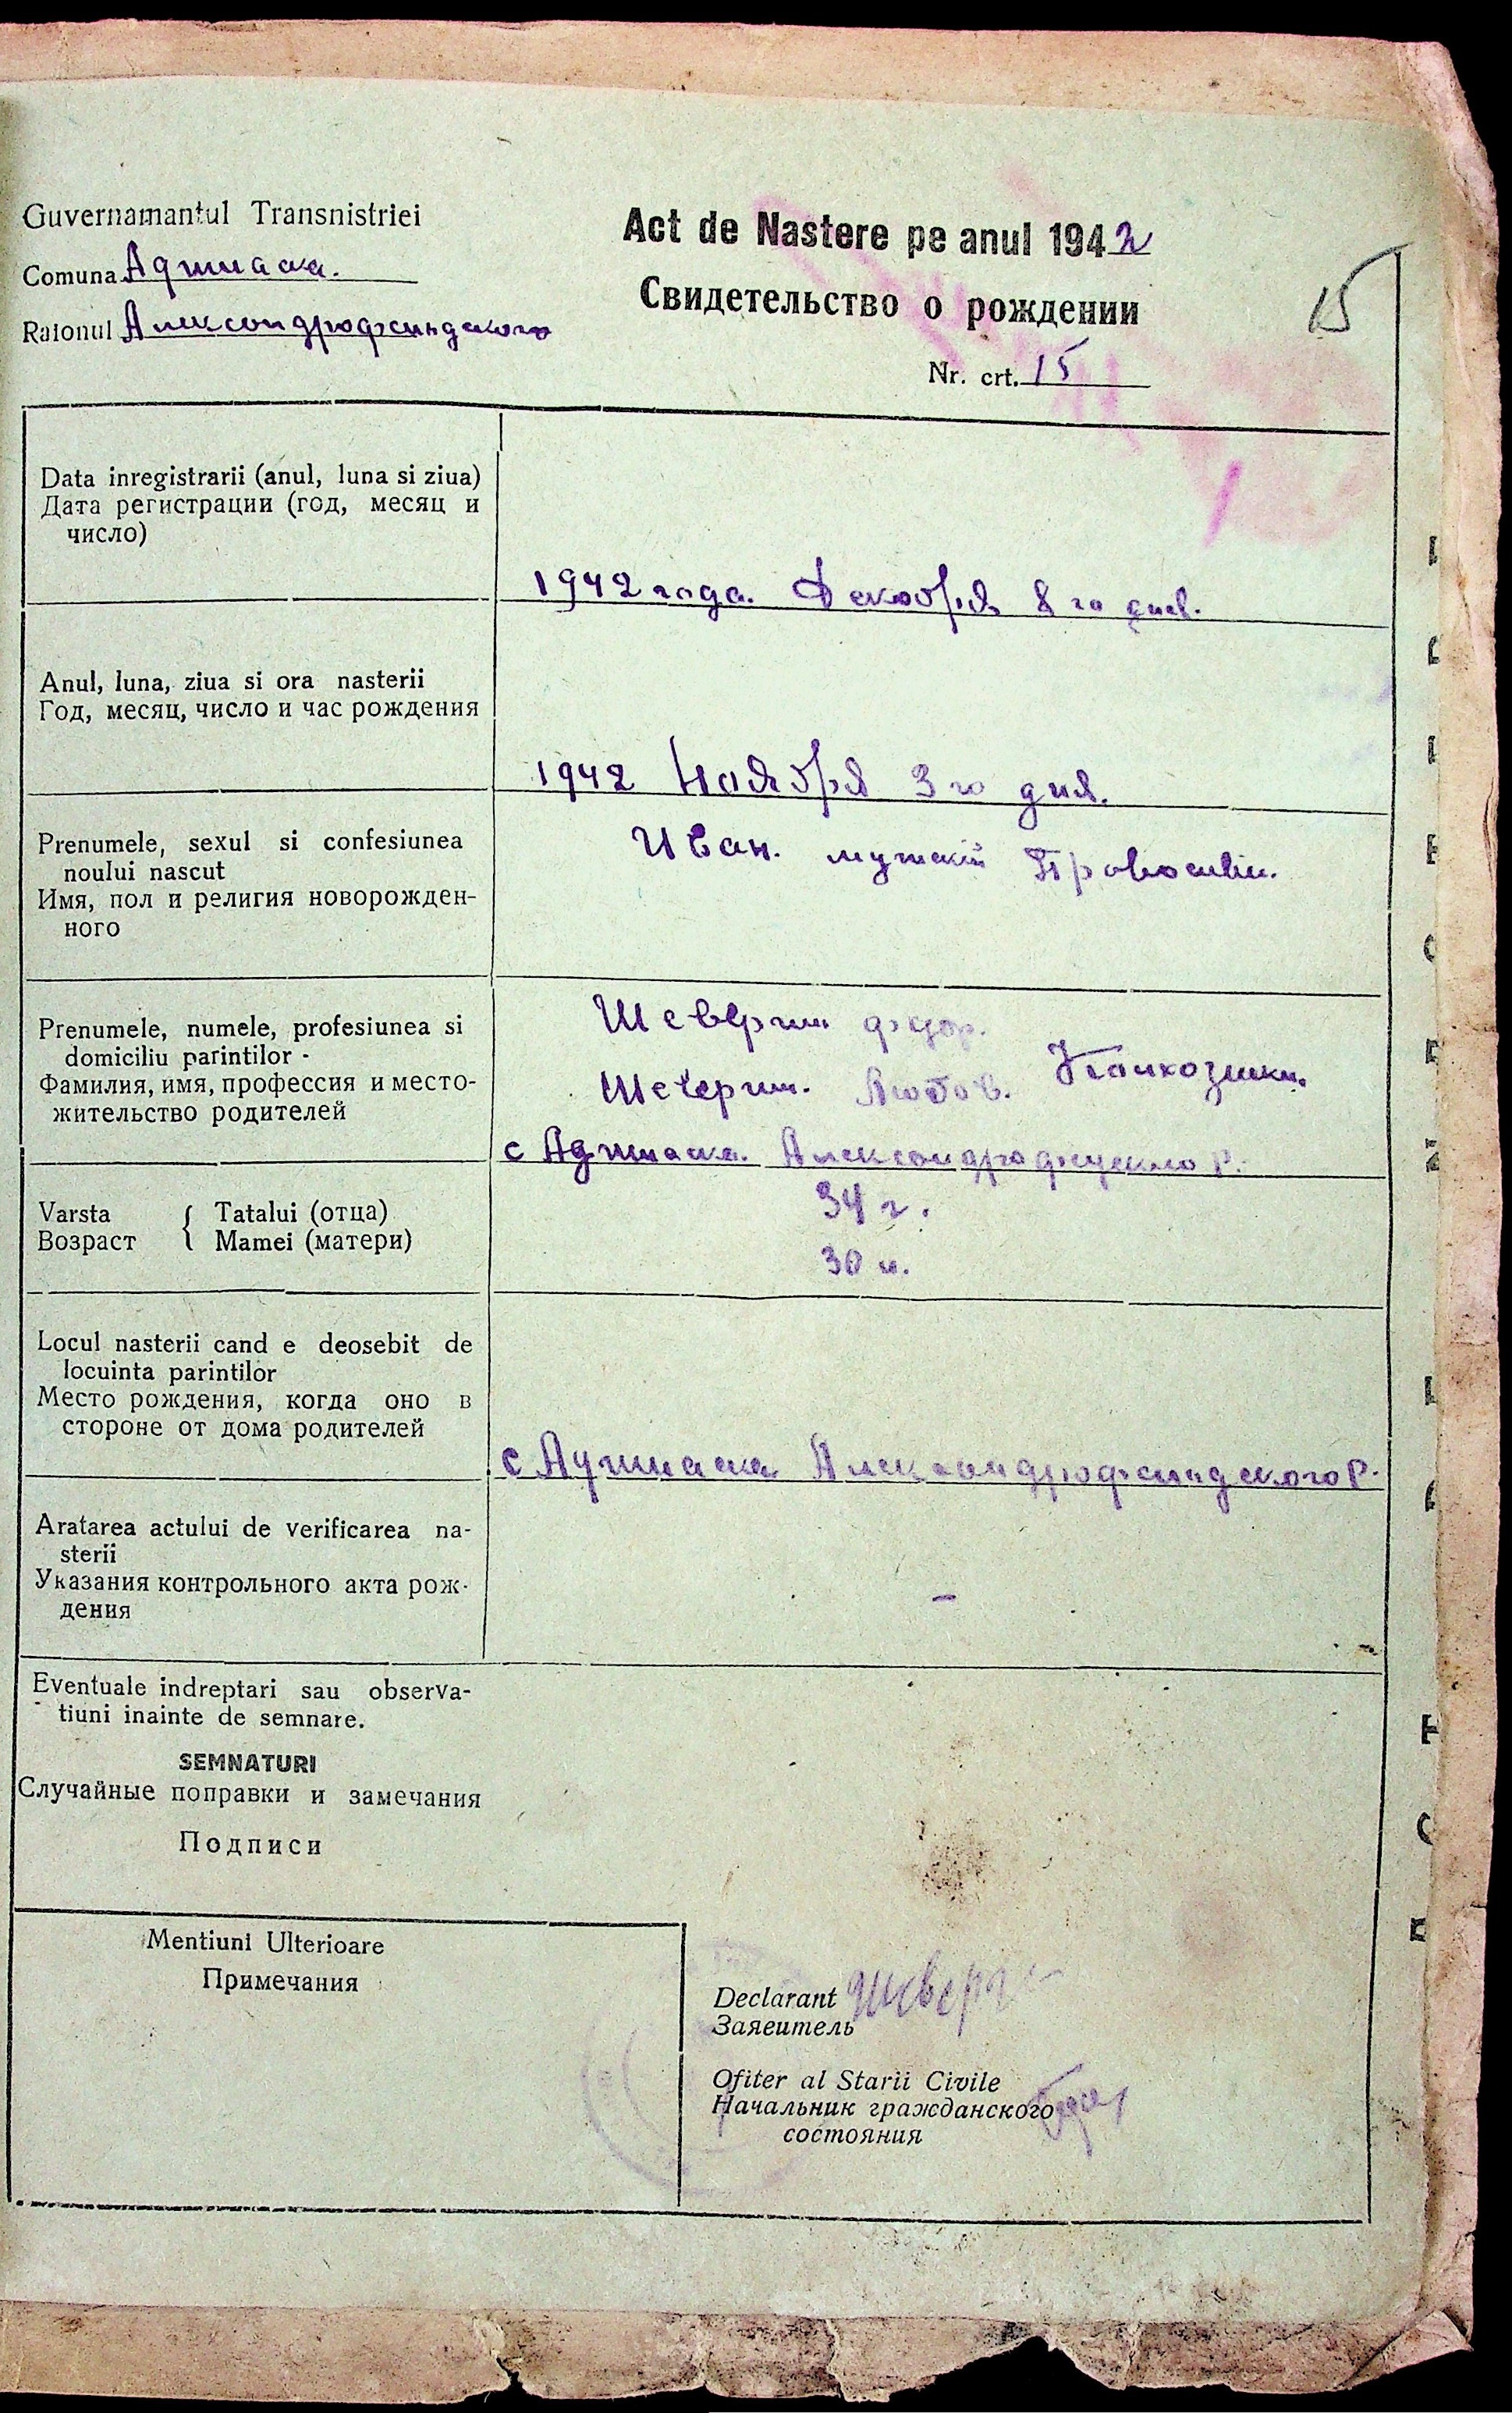 Guvernamantul Transnistriei
Comuna Аджиаска.
Raionul Александрофендского
Act de Nastere pe anul 1942
Свидетельство о рождении
Nr. crt. 15
15
Data inregistrarii (anul, luna si ziua)
Дата регистрации (год, месяц и
число)
1942 года. Декабря 8 го дня.
Anul, luna, ziua si ora nasterii
Год, месяц, число и час рождения
1942 Ноября 3 го дня.
Prenumele, sexul si confesiunea
noului nascut
Имя, пол и религия новорожден-
ного
Иван. мужский Провославн.
Prenumele, numele, profesiunea si
domiciliu parintilor -
Фамилия, имя, профессия и место-
жительство родителей
Шеверин федор.
Шеверин. Любов. Колхозники.
с Аджиаска. р.
Varsta { Tatalui (отца)
Возраст Mamei (матери)
34 г.
30 л.
Locul nasterii cand e deosebit de
locuinta parintilor
Место рождения, когда оно в
стороне от дома родителей
с Аджиаска Александрофендского р.
Aratarea actului de verificarea na-
sterii
Указания контрольного акта рож-
дения
–
Eventuale indreptari sau observa-
tiuni inainte de semnare.
SEMNATURI
Случайные поправки и замечания
Подписи
Mentiuni Ulterioare
Примечания
Declarant Шевер
Заяеитель
Ofiter al Starii Civile
Начальник гражданского
состояния